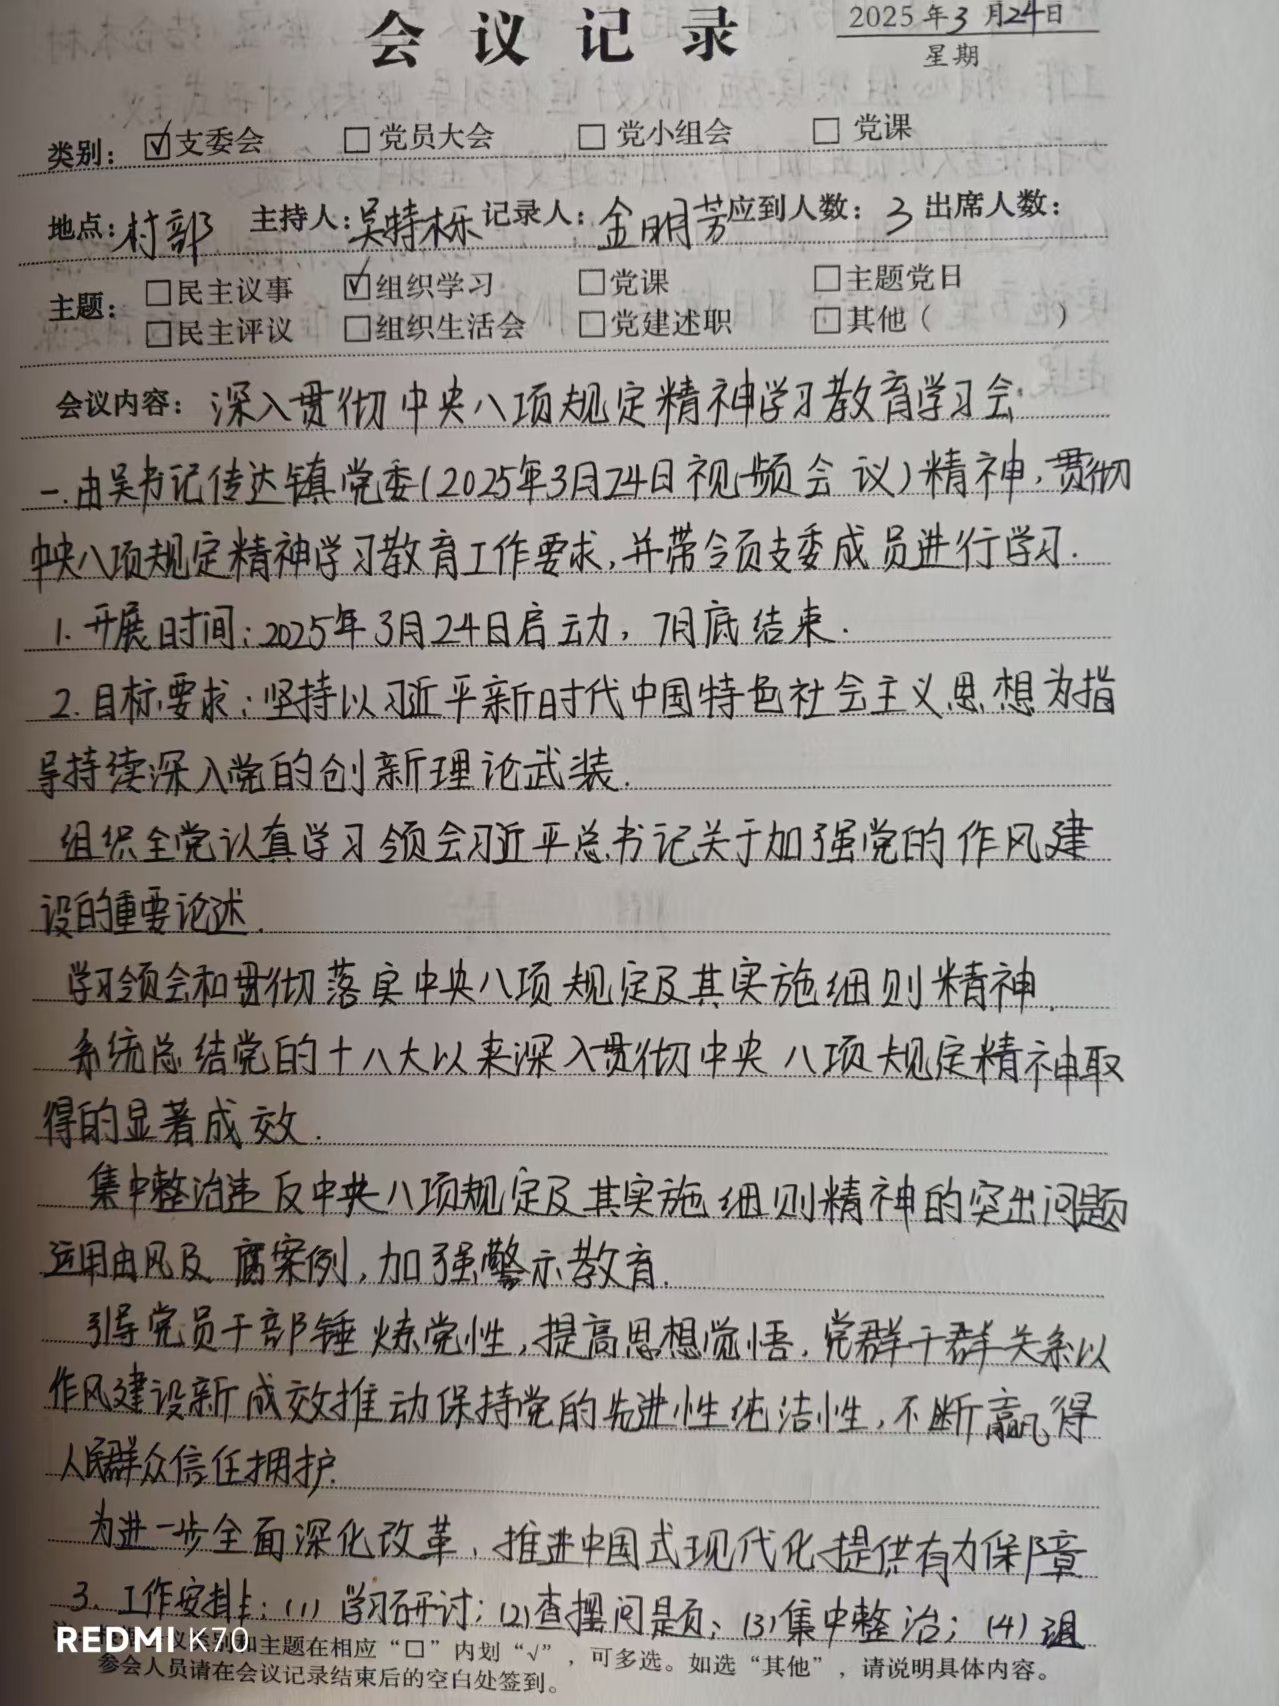 会议记录
2025年3月24日
星期
类别：☑支委会 □党员大会 □党小组会 □党课
地点：村部 主持人：吴特栎 记录人：金明芳 应到人数：3 出席人数：
主题：□民主议事 ☑组织学习 □党课 □主题党日
□民主评议 □组织生活会 □党建述职 □其他（ ）
会议内容：深入贯彻中央八项规定精神学习教育学习会.
一.由吴书记传达镇党委(2025年3月24日视频会议)精神,贯彻
中央八项规定精神学习教育工作要求,并带领支委成员进行学习.
1.开展时间:2025年3月24日启动,7月底结束.
2.目标要求:坚持以习近平新时代中国特色社会主义思想为指
导持续深入党的创新理论武装.
组织全党认真学习领会习近平总书记关于加强党的作风建
设的重要论述.
学习领会和贯彻落实中央八项规定及其实施细则精神.
系统总结党的十八大以来深入贯彻中央八项规定精神取
得的显著成效.
集中整治违反中央八项规定及其实施细则精神的突出问题
运用由风及腐案例,加强警示教育.
引导党员干部锤炼党性,提高思想觉悟,党群干群关系以
作风建设新成效推动保持党的先进性纯洁性,不断赢得
人民群众信任拥护.
为进一步全面深化改革,推进中国式现代化提供有力保障
3.工作安排:(1)学习研讨;(2)查摆问题;(3)集中整治;(4)
主题在相应“□”内划“√”，可多选。如选“其他”，请说明具体内容。
参会人员请在会议记录结束后的空白处签到。
REDMI K70